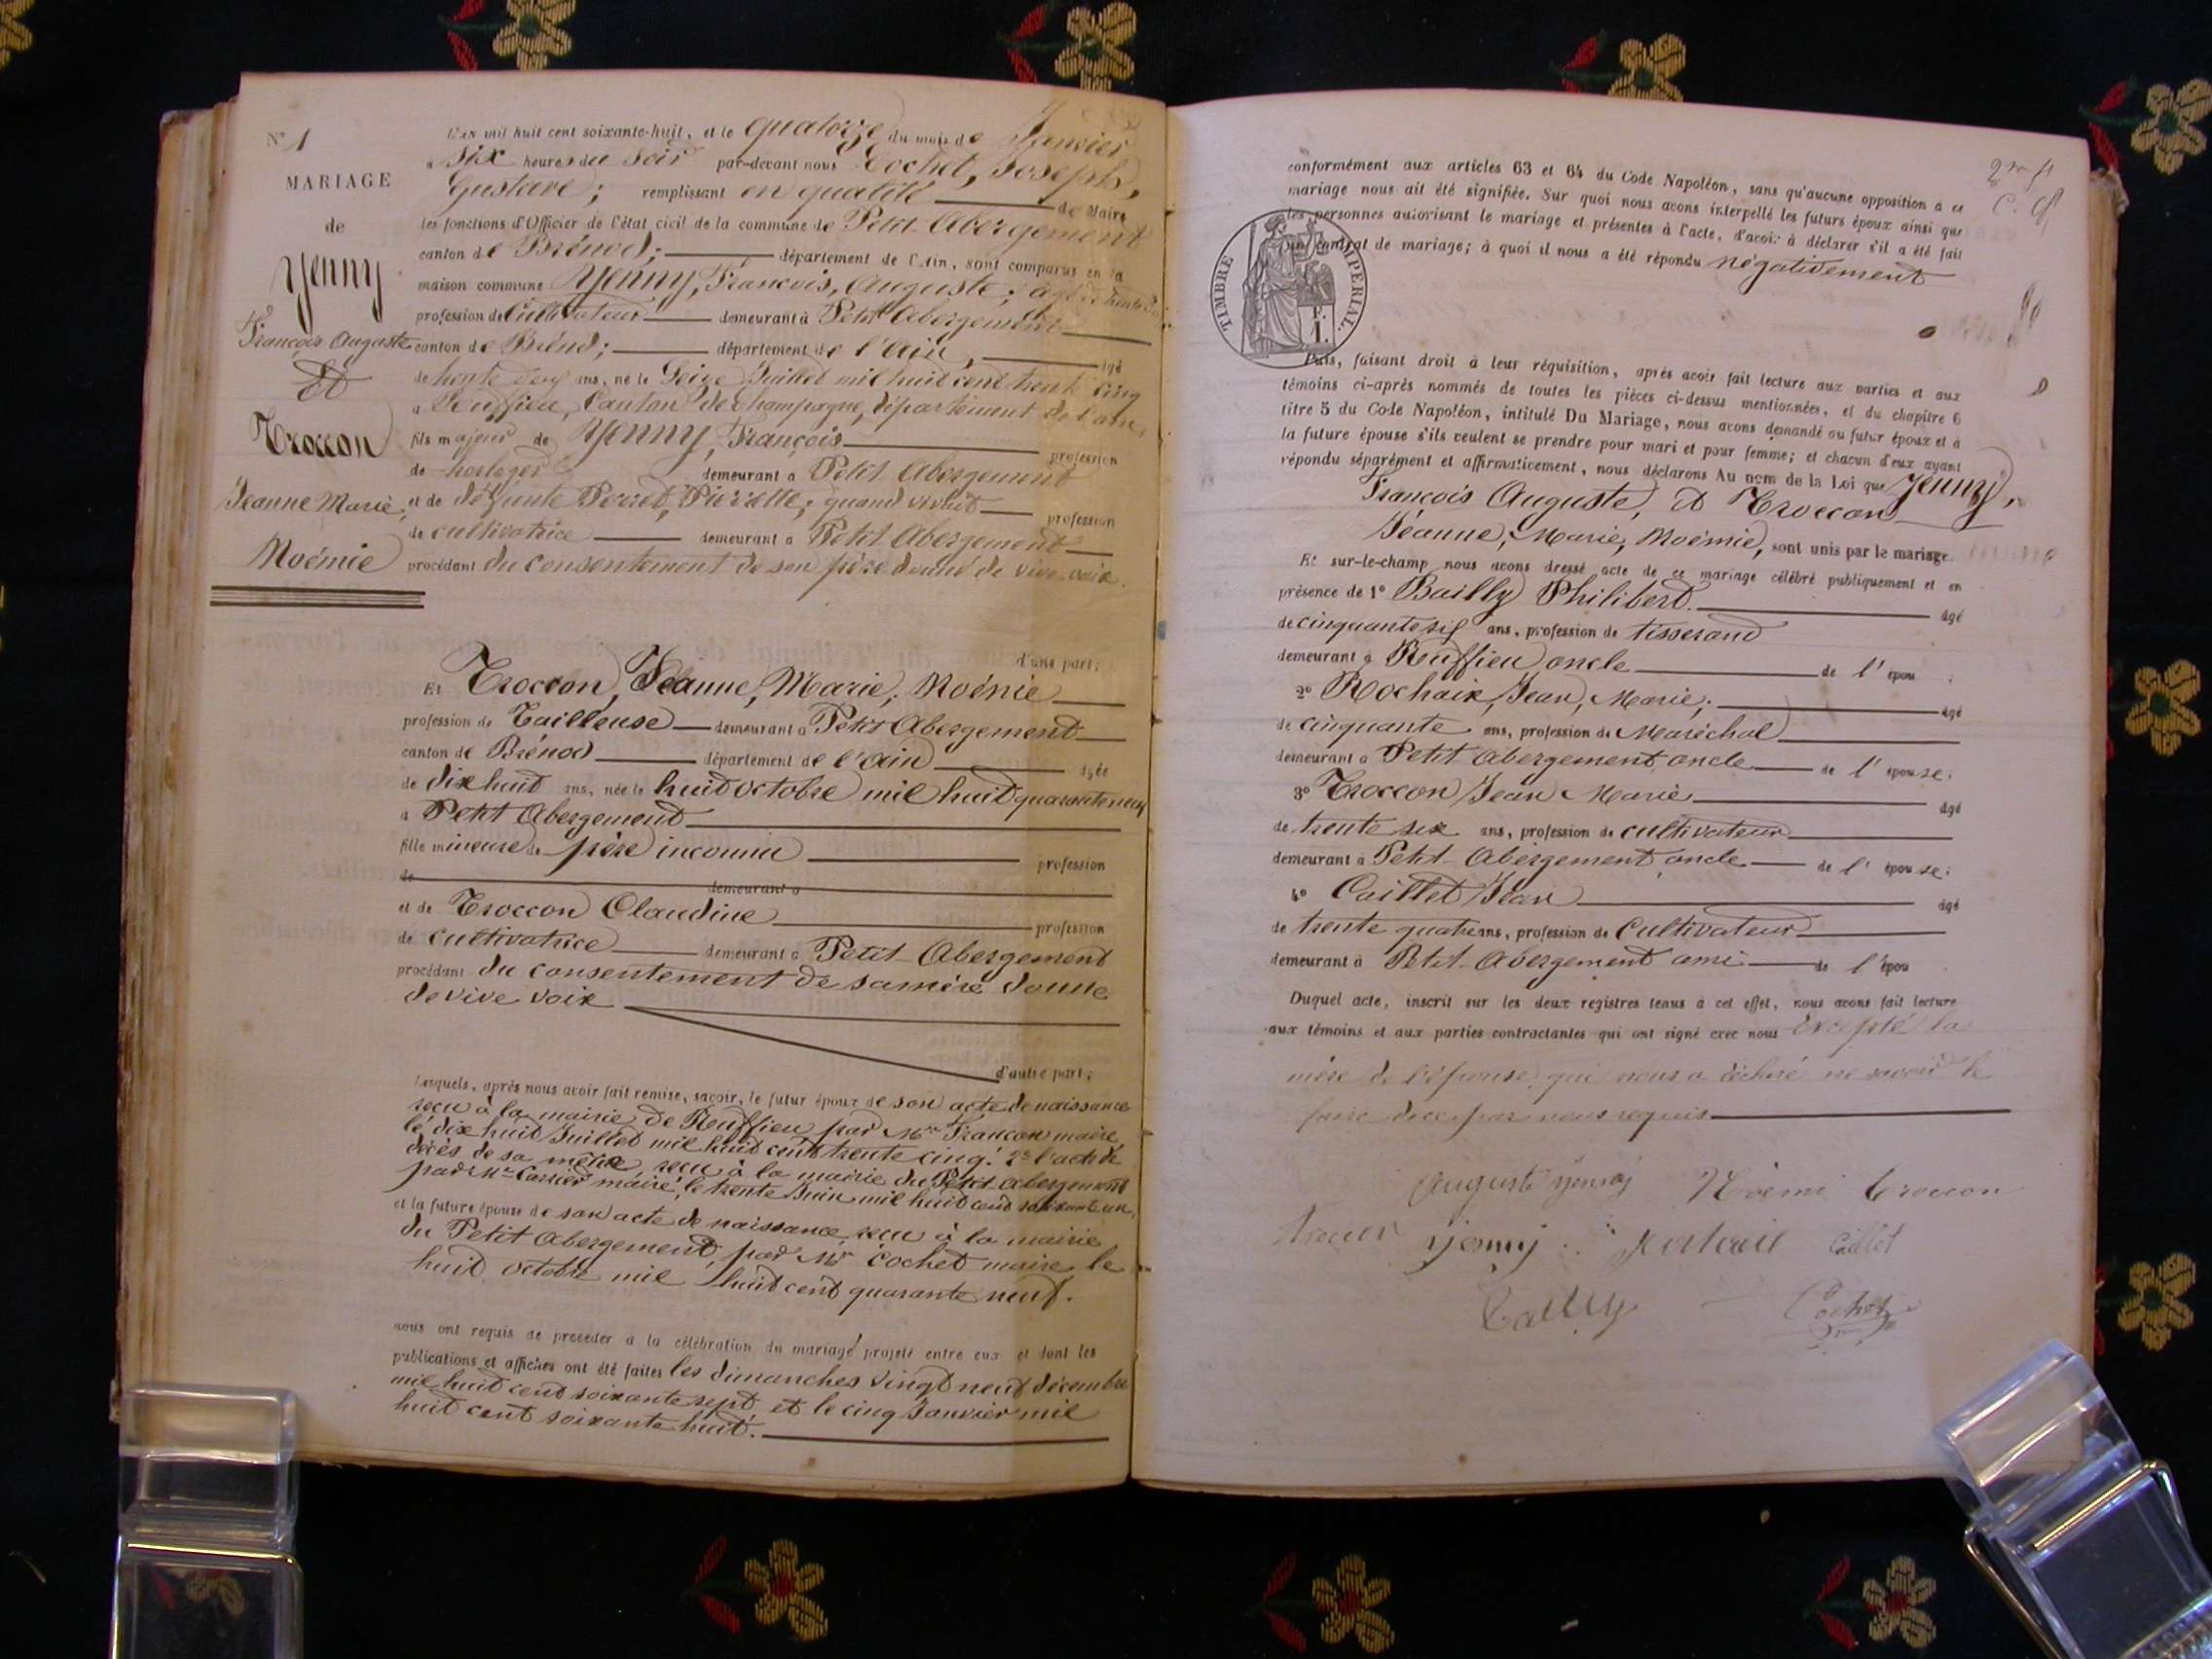 N° 1
MARIAGE
de
Yenny
François Auguste
et
Troccon
Jeanne Marie,
Noémie
L'an mil huit cent soixante-huit, et le quatorze du mois de Janvier
a six heures du soir par-devant nous Cochet, Joseph,
Gustave; remplissant en qualité de Maire
les fonctions d'Officier de l'état civil de la commune de Petit Abergement
canton de Brénod; département de l'Ain, sont comparus en la
maison commune Yenny, François, Auguste; agé de trente
profession de Cultivateur demeurant à Petit Abergement
canton de Brénod; département de l'Ain, âgé
de trente deux ans, né le Seize Juillet mil huit cent trente cinq
a Ruffieu, Canton de Champagne, département de l'ain,
fils majeur de Yenny, François profession
de horloger demeurant a Petit Abergement
et de défunte Perret, Pierrette, quand vivait profession
de cultivatrice demeurant a Petit Abergement
procédant du consentement de son père donné de vive voix.
d'une part;
Et Troccon, Jeanne, Marie, Noémie
profession de Tailleuse demeurant a Petit Abergement
canton de Brénod département de l'ain agée
de dix huit ans, née le huit octobre mil huit quarante neuf
a Petit Abergement
fille mineure de père inconnu profession
de demeurant a
et de Troccon Claudine profession
de cultivatrice demeurant a Petit Abergement
procédant du consentement de sa mère donné
de vive voix
d'autre part;
Lesquels, après nous avoir fait remise, savoir, le futur époux de son acte de naissance
reçu à la mairie de Ruffieu par Mr Françon maire
le dix huit Juillet mil huit cent trente cinq. 2° l'acte de
décès de sa mère reçu à la mairie du Petit Abergement
par Mr Carrier maire, le trente Juin mil huit cent soixante un,
et la future épouse de son acte de naissance reçu à la mairie
du Petit Abergement, par Mr Cochet maire le
huit octobre mil huit cent quarante neuf.
nous ont requis de procéder à la célébration du mariage projeté entre eux et dont les
publications et affiches ont été faites les dimanches vingt neuf décembre
mil huit cent soixante sept et le cinq Janvier mil
huit cent soixante huit.
conformément aux articles 63 et 64 du Code Napoléon, sans qu'aucune opposition a ce
mariage nous ait été signifiée. Sur quoi nous avons interpellé les futurs époux ainsi que
les personnes autorisant le mariage et présentes à l'acte, d'avoir à déclarer s'il a été fait
un contrat de mariage; à quoi il nous a été répondu négativement
TIMBRE IMPERIAL.
F.
1.
Puis, faisant droit à leur réquisition, après avoir fait lecture aux parties et aux
témoins ci-après nommés de toutes les pièces ci-dessus mentionnées, et du chapitre 6
titre 5 du Code Napoléon, intitulé Du Mariage, nous avons demandé au futur époux et à
la future épouse s'ils veulent se prendre pour mari et pour femme; et chacun d'eux ayant
répondu séparément et affirmativement, nous déclarons Au nom de la Loi que Yenny,
François Auguste, et Troccon
Jeanne, Marie, Noémie, sont unis par le mariage.
Et sur-le-champ nous avons dressé acte de ce mariage célébré publiquement et en
présence de 1° Bailly Philibert. âgé
de cinquante six ans, profession de tisserand
demeurant a Ruffieu oncle de l'épou ;
2° Rochaix, Jean, Marie; âgé
de cinquante ans, profession de Maréchal
demeurant a Petit Abergement oncle de l'épouse;
3° Troccon Jean Marie âgé
de trente six ans, profession de cultivateur
demeurant a Petit Abergement, oncle de l'épouse;
4° Caillet Jean âgé
de trente quatre ans, profession de Cultivateur
demeurant à Petit Abergement ami de l'épou
Duquel acte, inscrit sur les deux registres tenus à cet effet, nous avons fait lecture
aux témoins et aux parties contractantes qui ont signé avec nous Excepté la
mère de l'épouse, qui nous a déclaré ne savoir le
faire de ce par nous requis
Auguste yenny Noémi troccon
yenny Callet
Bailly Cochet